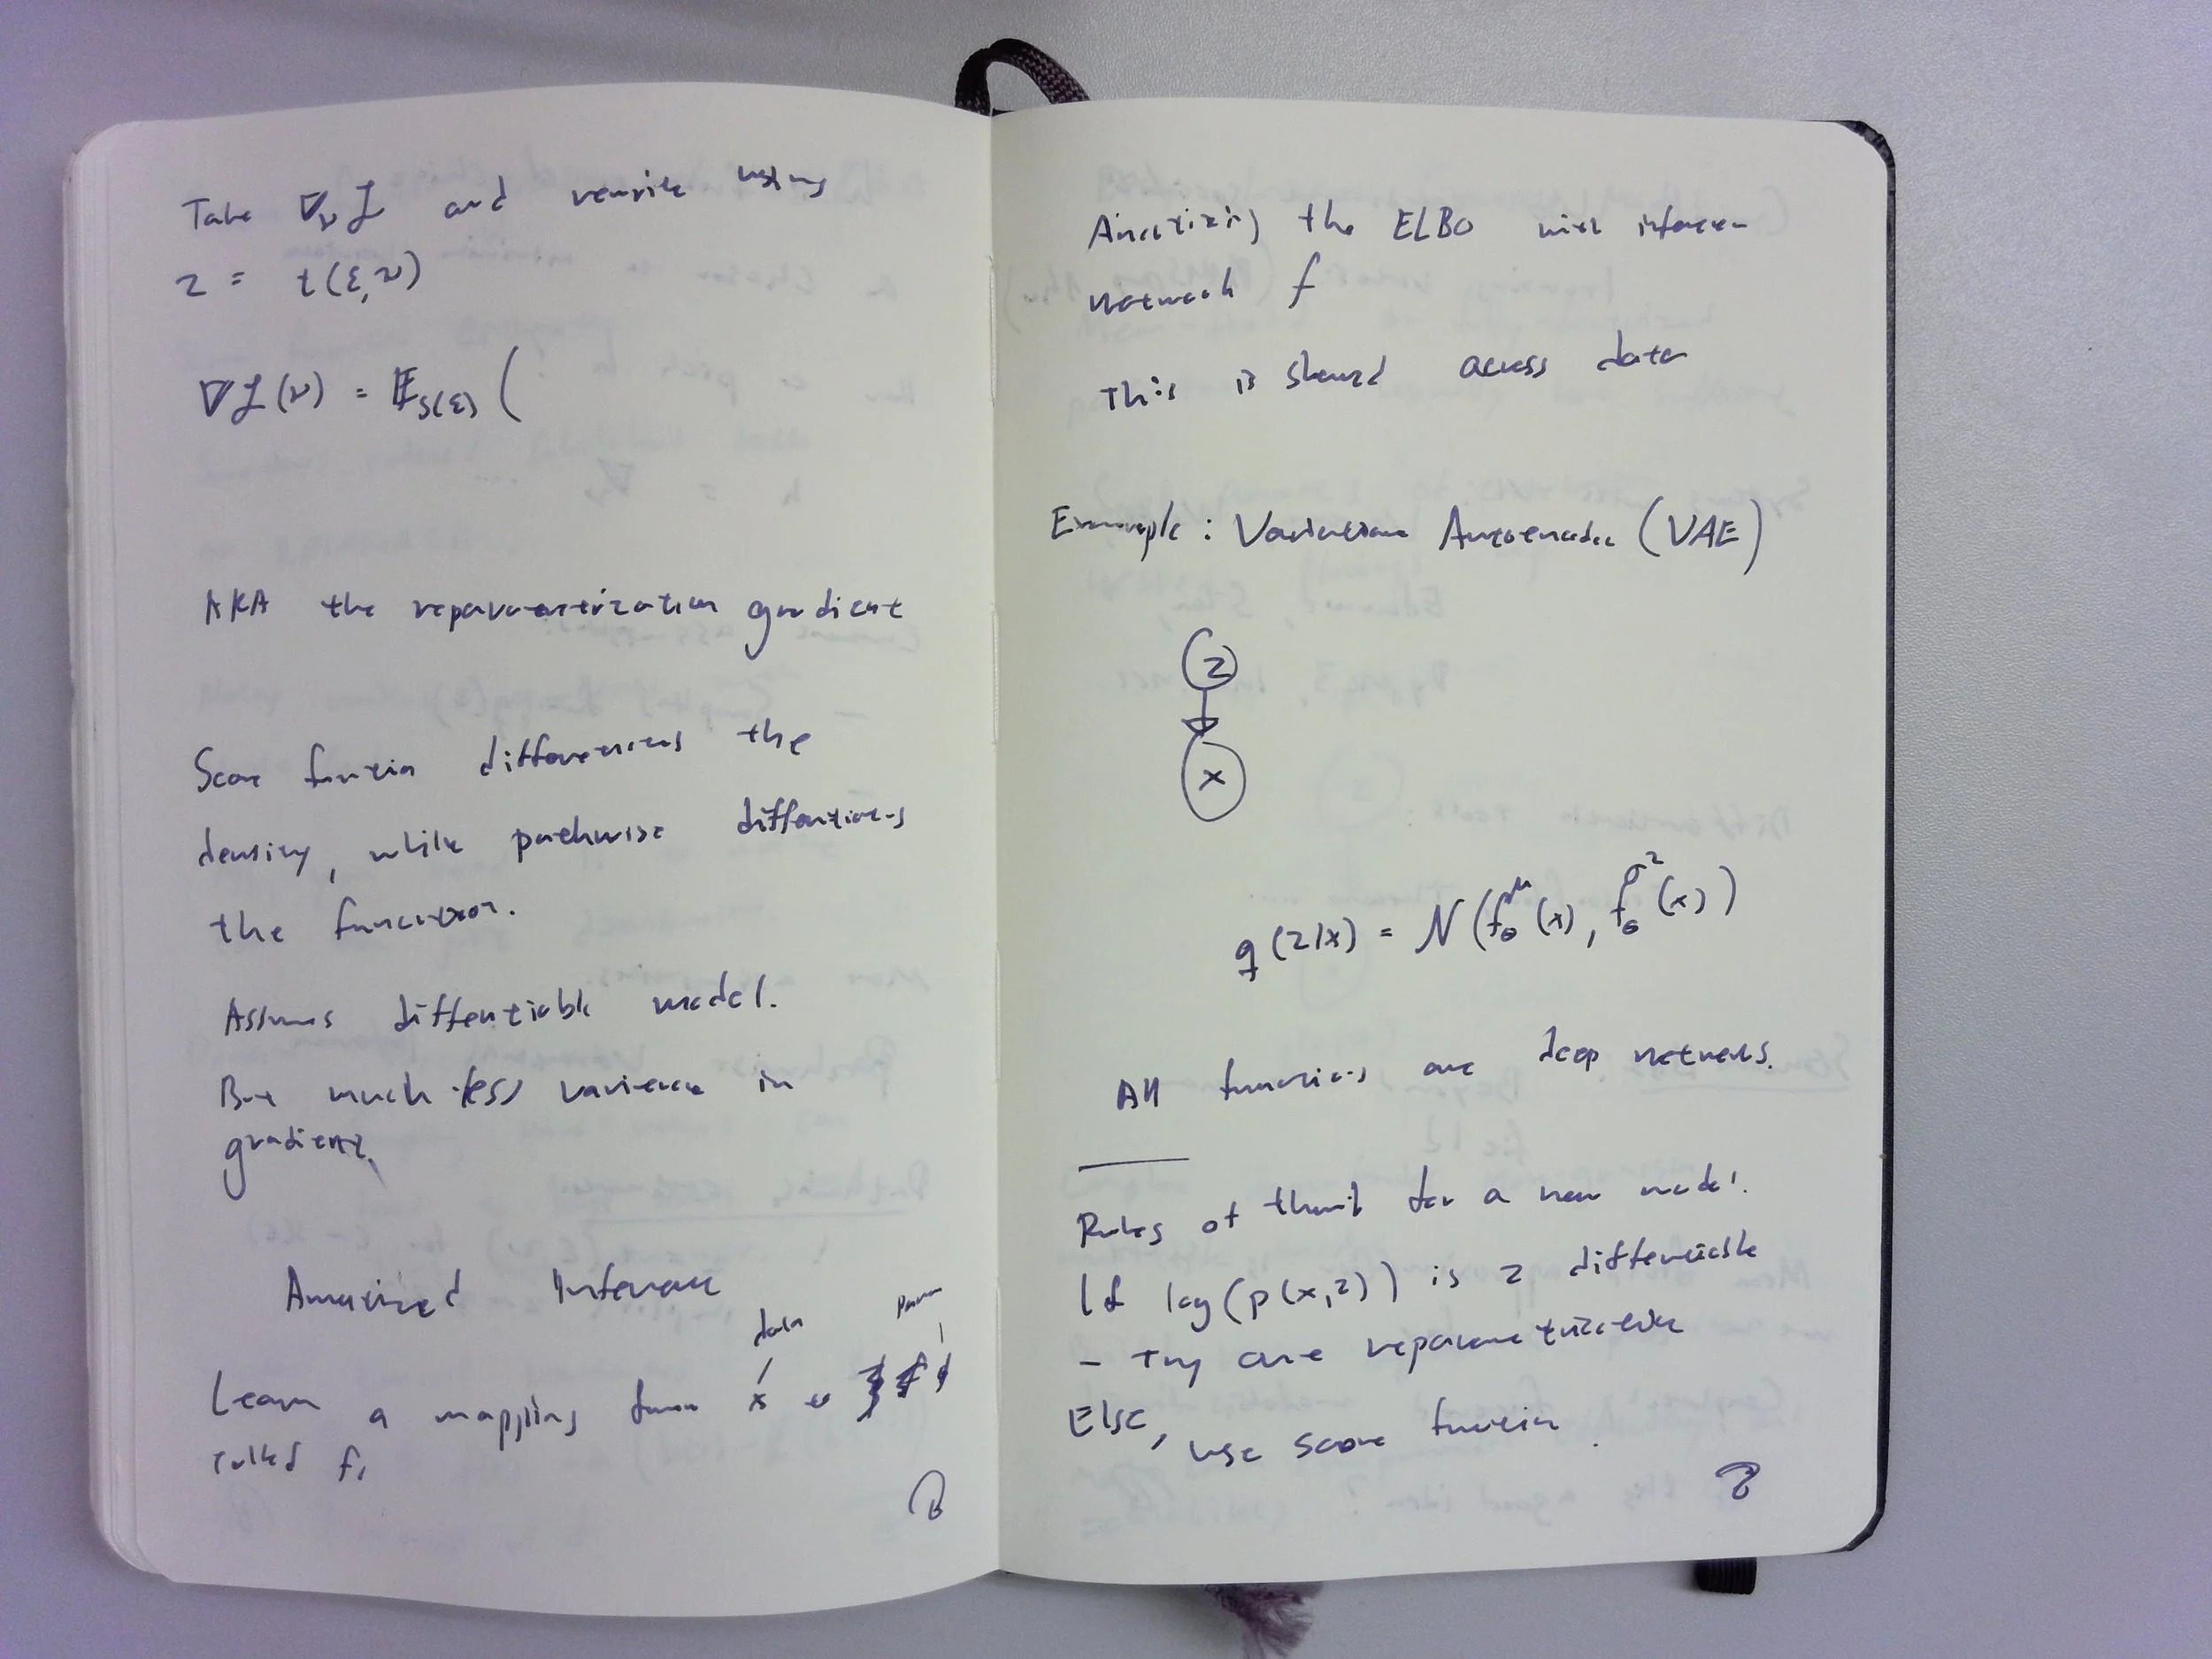 Take ∇_ν ℒ and rewrite using
z = t(ε, ν)
∇ℒ(ν) = 𝔼_s(ε) (
AKA the reparameterization gradient
Score function differentiates the
density, while pathwise differentiates
the function.
Assumes differentiable model.
But much less variance in
gradient.
Amortized Inference
data param
Learn a mapping from x to ϕ
called f,
Amortizing the ELBO with inference
network f
This is shared across data
Example: Variational Autoencoder (VAE)
z
x
q(z|x) = N(f_θ^μ(x), f_θ^σ²(x))
All functions are deep networks.
Rules of thumb for a new model.
If log(p(x,z)) is z differentiable
- Try out reparameterization
Else, use score function.